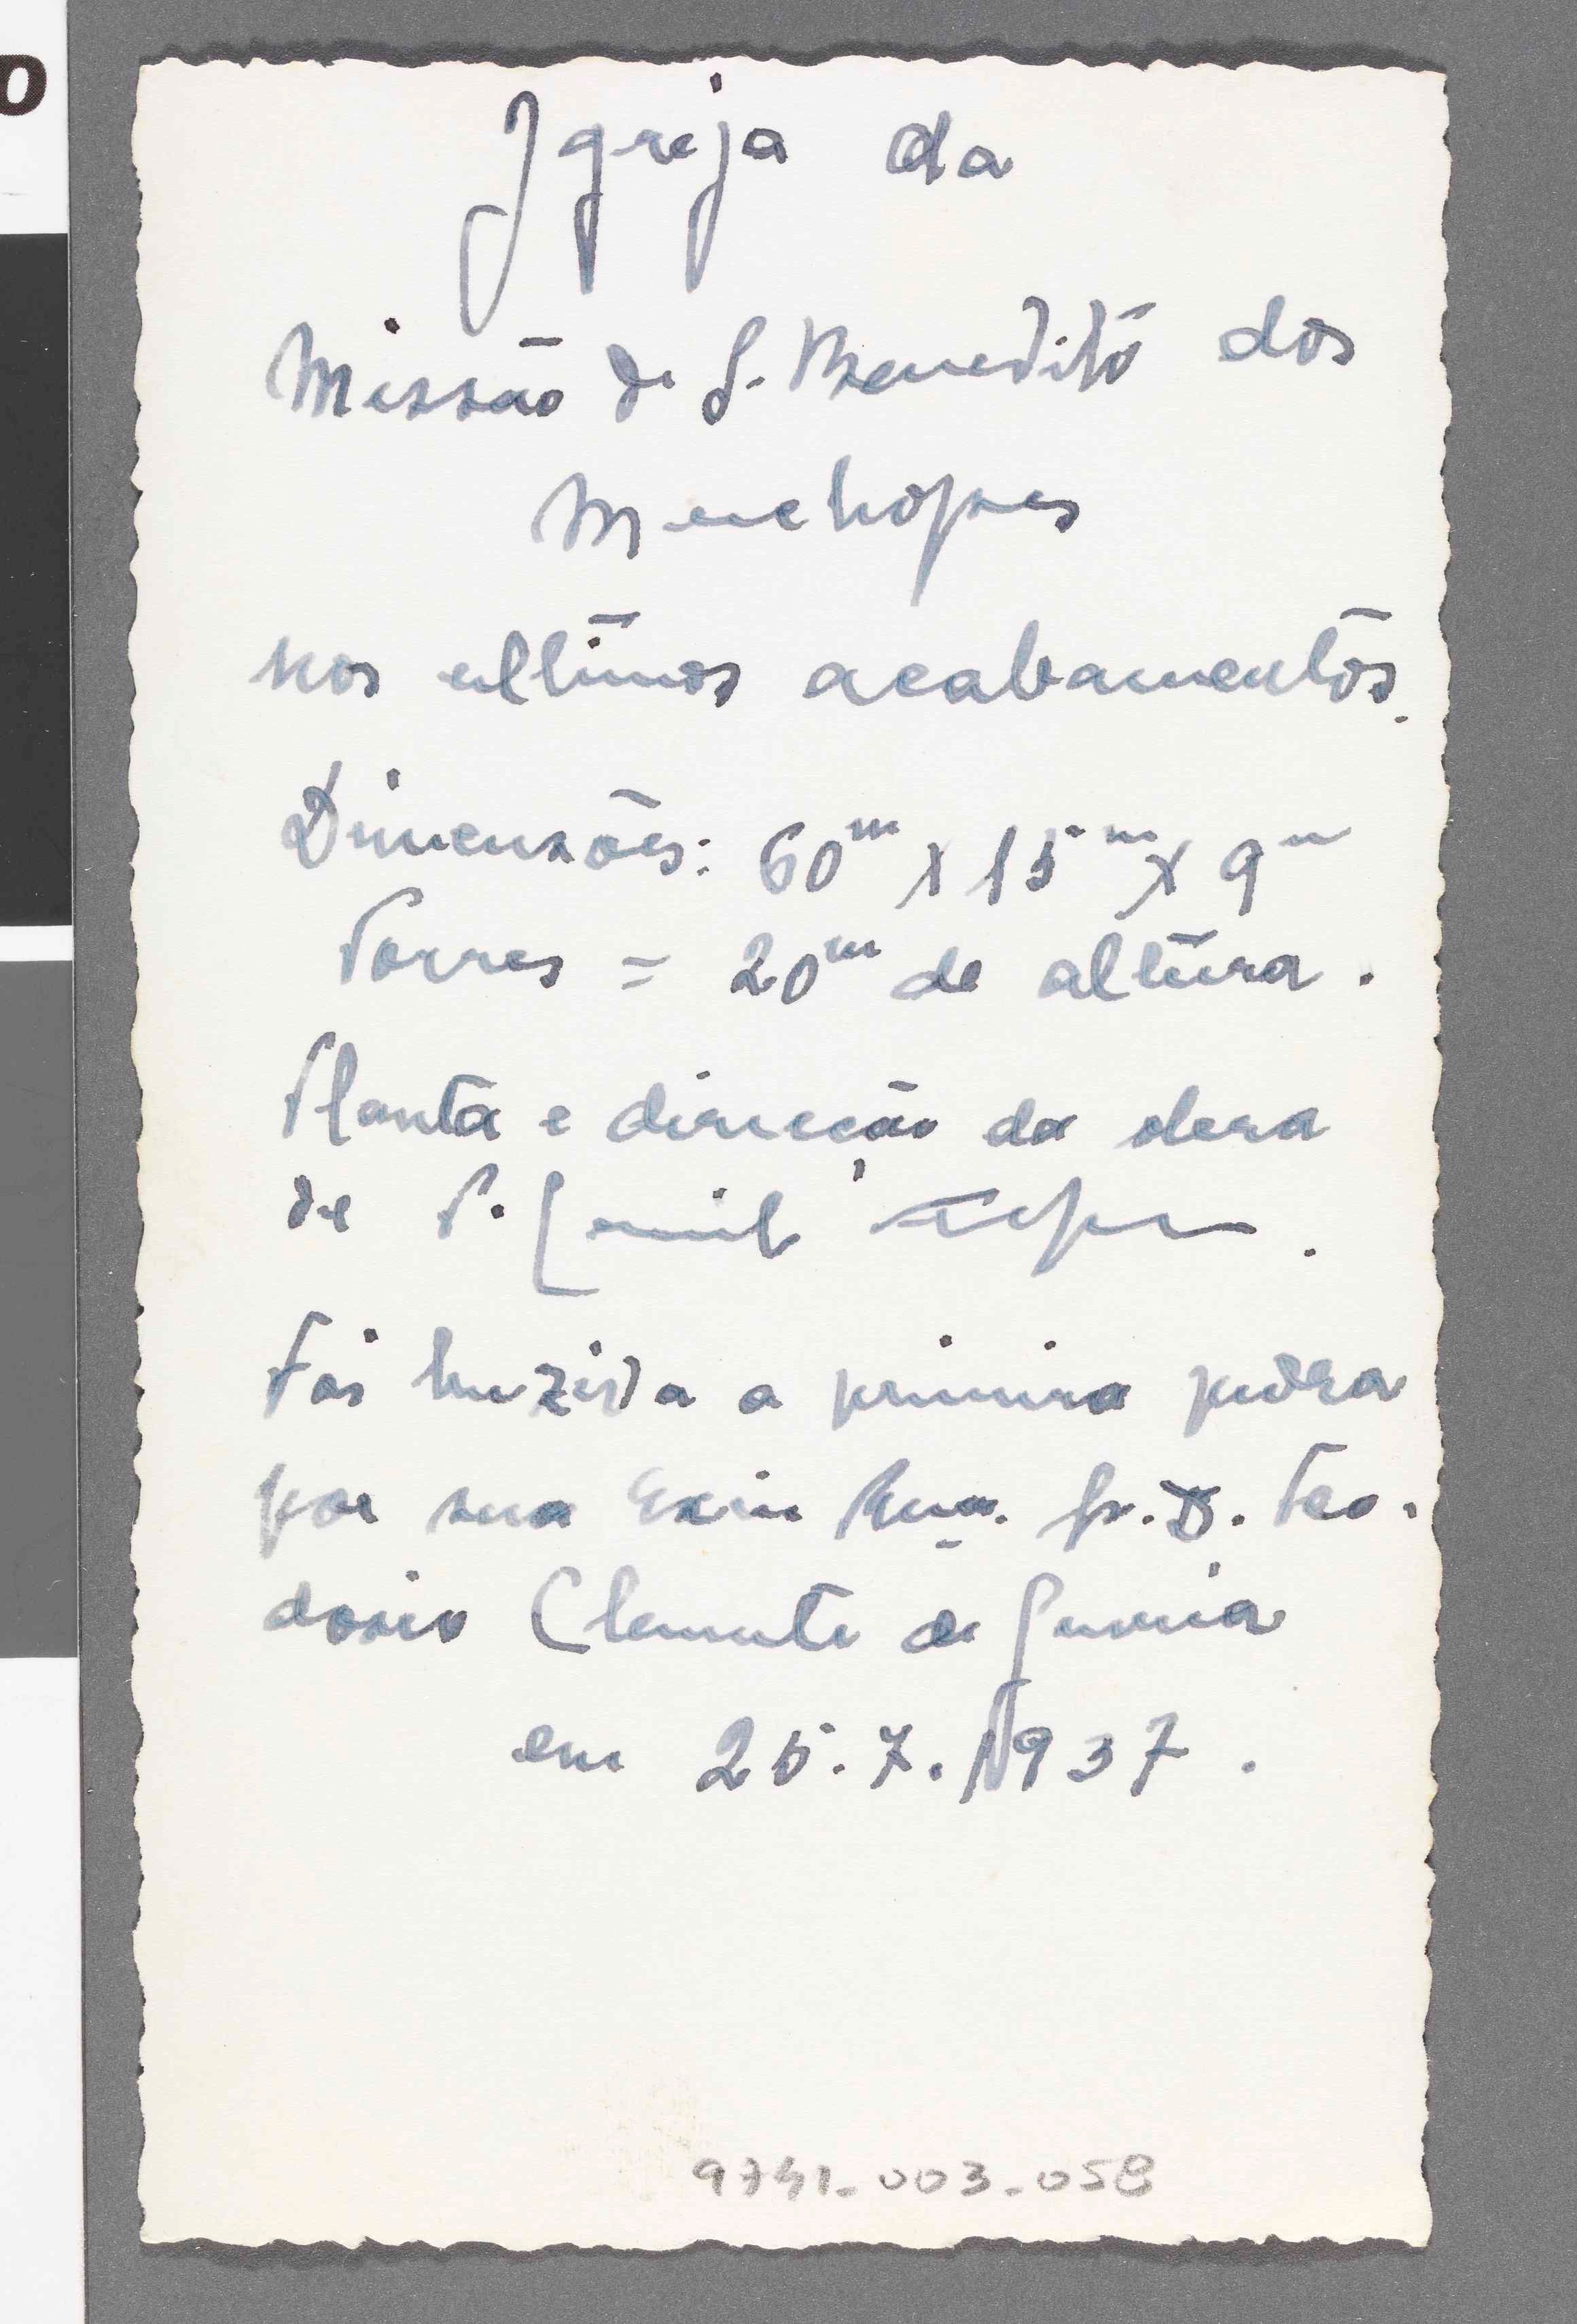 Igreja da
Missão de S. Benedito dos
Muchopes
nos ultimos acabamentos.
Dimensões: 60m x 15m x 9m
Torres = 20m de altura.
Planta e direcção da obra
de P.
Foi benzida a primeira pedra
por sua Excia Rma. Sr. D. Teo-
dosio Clemente de Gouveia
em 25.7.1937.
9741-003-058
o